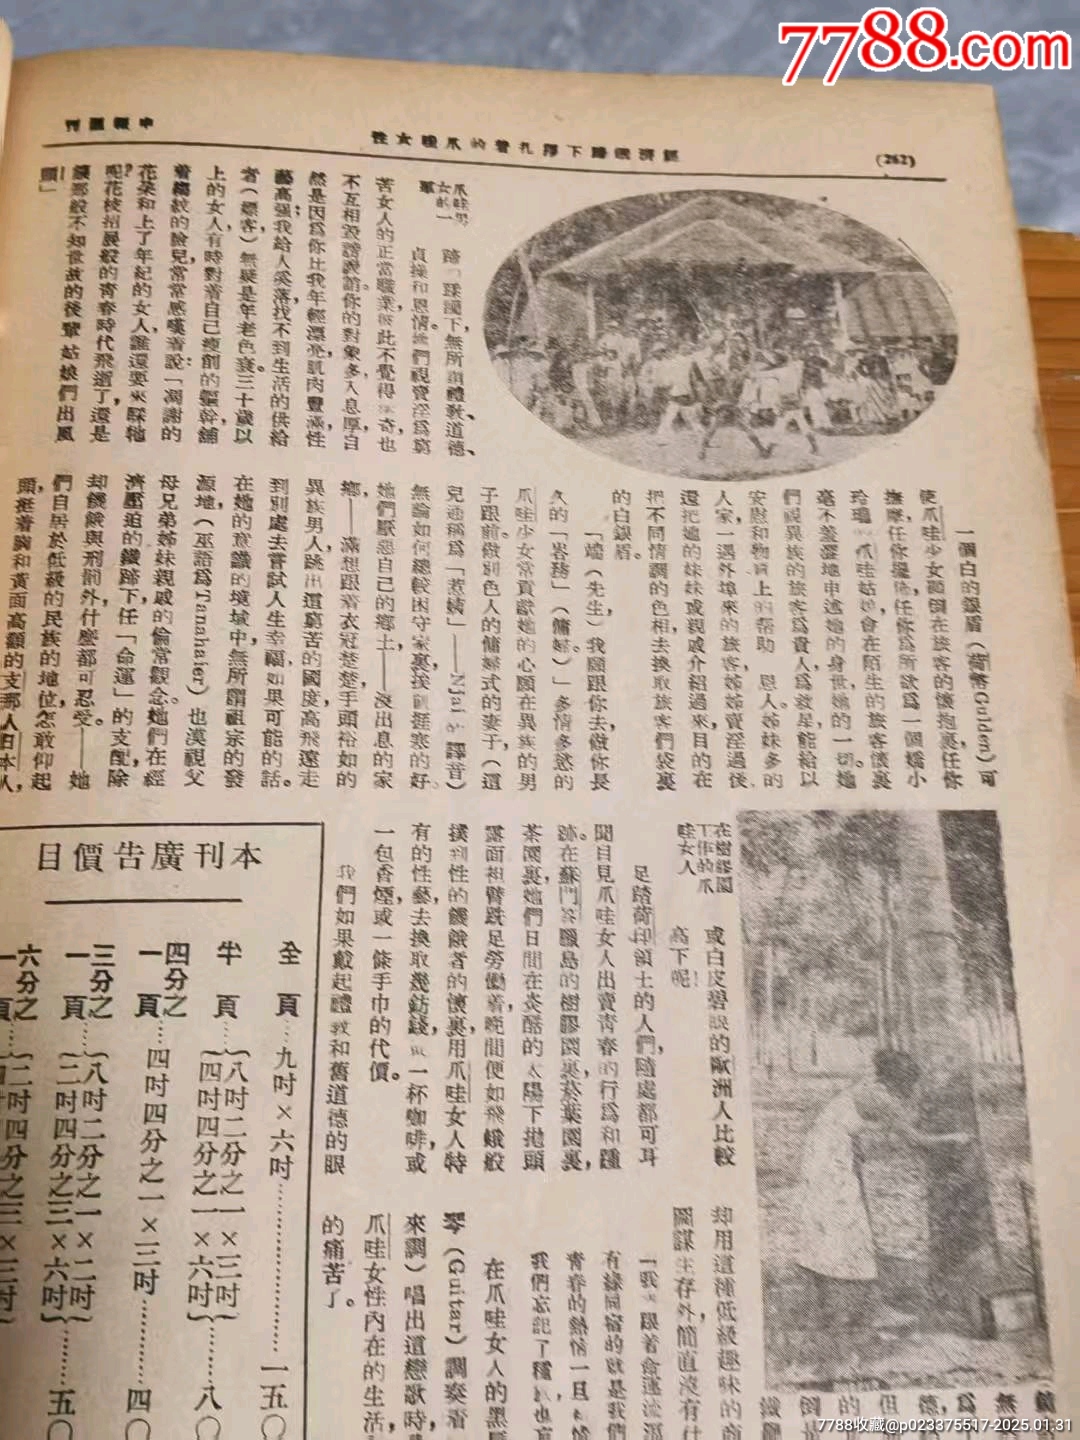 (262)
經濟鐵蹄下掙扎着的爪哇女性
申報週刊
爪哇男
女的一
羣
蹄」蹂躪下,無所謂禮教、道德、
貞操和恩情。她們視賣淫爲窮
苦女人的正當職業,彼此不覺得奇,也
不互相毀謗說:「你的對象多,入息厚,自
然是因爲你比我年輕漂亮,肌肉豐滿,性
藝高强;我給人奚落,找不到生活的供給
者(嫖客)無疑是年老色衰。三十歲以
上的女人,有時對着自己瘦削的軀幹,舖
着縐紋的臉兒,常常感嘆着說:「凋謝的
花朵和上了年紀的女人,誰還要來睬牠
呢?花枝招展般的青春時代飛逝了,還是
讓那般不知世故的後輩姑娘們出風
頭」
一個白的銀盾(荷幣Gulden)可
使爪哇少女顚倒在旅客的懷抱裏,任你
撫摩,任你擺佈,任你爲所欲爲。一個嬌小
玲瓏的爪哇姑娘,會在陌生的旅客懷裏
毫不羞澀地申述她的身世,她的一切。她
們視異族的旅客爲貴人,爲救星,能給以
安慰和物質上的帮助 恩人。姊妹多的
人家,一遇外埠來的旅客,姊姊賣淫過後,
還把她的妹妹或親戚介紹過來,目的在
把不同情調的色相去換取旅客們袋裏
的白銀盾。
「㙐(先生)我願跟你去,做你長
久的「峇務」(傭婦)」多情多慾的
爪哇少女常貢獻她的心願在異族的男
子跟前,做別色人的傭婦式的妻子,(這
兒通稱爲「惹𡞲」——Njai譯音)
無論如何總較困守家裏,挨飢挺寒的好
她們厭惡自己的鄉土——沒出息的家
鄉——滿想跟着衣冠楚楚,手頭裕如的
異族男人跳出這窮苦的國度,高飛遠走
到別處去嘗試人生幸福,如果可能的話。
在她的意識的境域中,無所謂祖宗的發
源地(巫語爲Tanahaier)也漠視父
母兄弟姊妹親戚的倫常觀念。她們在經
濟壓迫的鐵蹄下,任「命運」的支配,除
却饑餓與刑罰外,什麼都可忍受。——她
們自居於低級的民族的地位,怎敢仰起
頭,挺着胸和黃面高顴的支那人,日本人,
在樹膠園
工作的爪
哇女人
或白皮碧眼的歐洲人比較
高下呢!
足踏荷印領土的人們,隨處都可耳
聞目見爪哇女人出賣青春的行爲和踵
跡。在蘇門答臘島的樹膠園裏,菸葉園裏,
茶園裏,她們日間在炎酷的太陽下拋頭
露面袒臂跣足勞働着,晚間便如飛蛾般
撲到性的饑餓者的懷裏,用爪哇女人特
有的性藝去換取幾鈁錢,或一杯咖啡,或
一包香煙,或一條手巾的代價。
我們如果戴起禮教和舊道德的眼
却用這種低級趣味的
圖謀生存外,簡直沒有什
「我 跟着命運流
有緣同宿的就是我們
青春的熱情一旦
我們忘記了種
在爪哇女人的黑
琴(Guitar)調奏着
來調)唱出這戀歌時,
爪哇女性內在的生活,
的痛苦了。
本刊廣告價目
全頁…九吋×六吋…………一五〇
半頁…{八吋二分之一×三吋
四吋四分之一×六吋}……八〇
四分之
一頁…四吋四分之一×三吋……四〇
三分之
一頁…{八吋二分之一×二吋
二吋四分之三×六吋}……五〇
六分之
7788.com
7788收藏@p023375517-2025.01.31